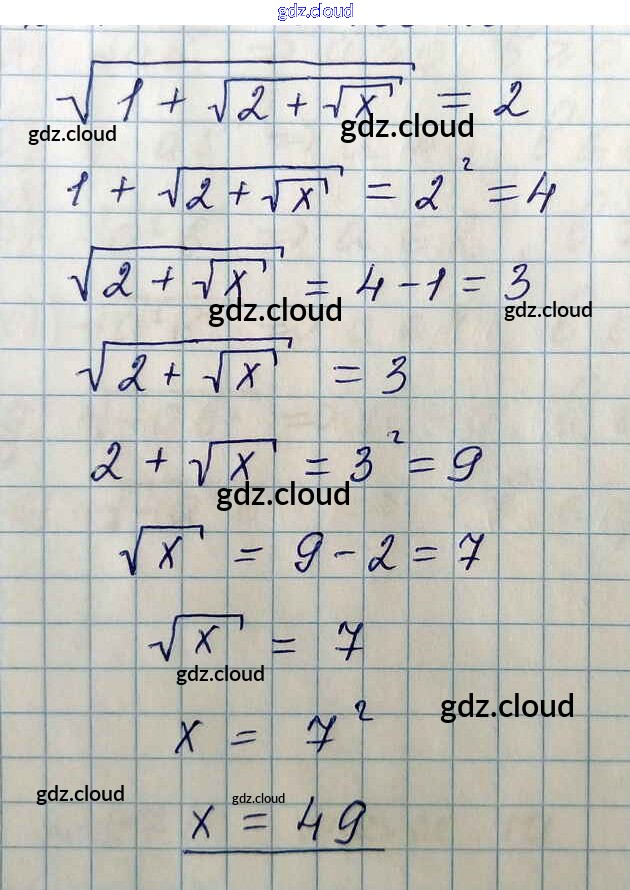 gdz.cloud
√(1 + √(2 + √x)) = 2
gdz.cloud
gdz.cloud
1 + √(2 + √x) = 2² = 4
√(2 + √x) = 4 - 1 = 3
gdz.cloud
gdz.cloud
√(2 + √x) = 3
2 + √x = 3² = 9
gdz.cloud
√x = 9 - 2 = 7
√x = 7
gdz.cloud
gdz.cloud
x = 7²
gdz.cloud
gdz.cloud
x = 49